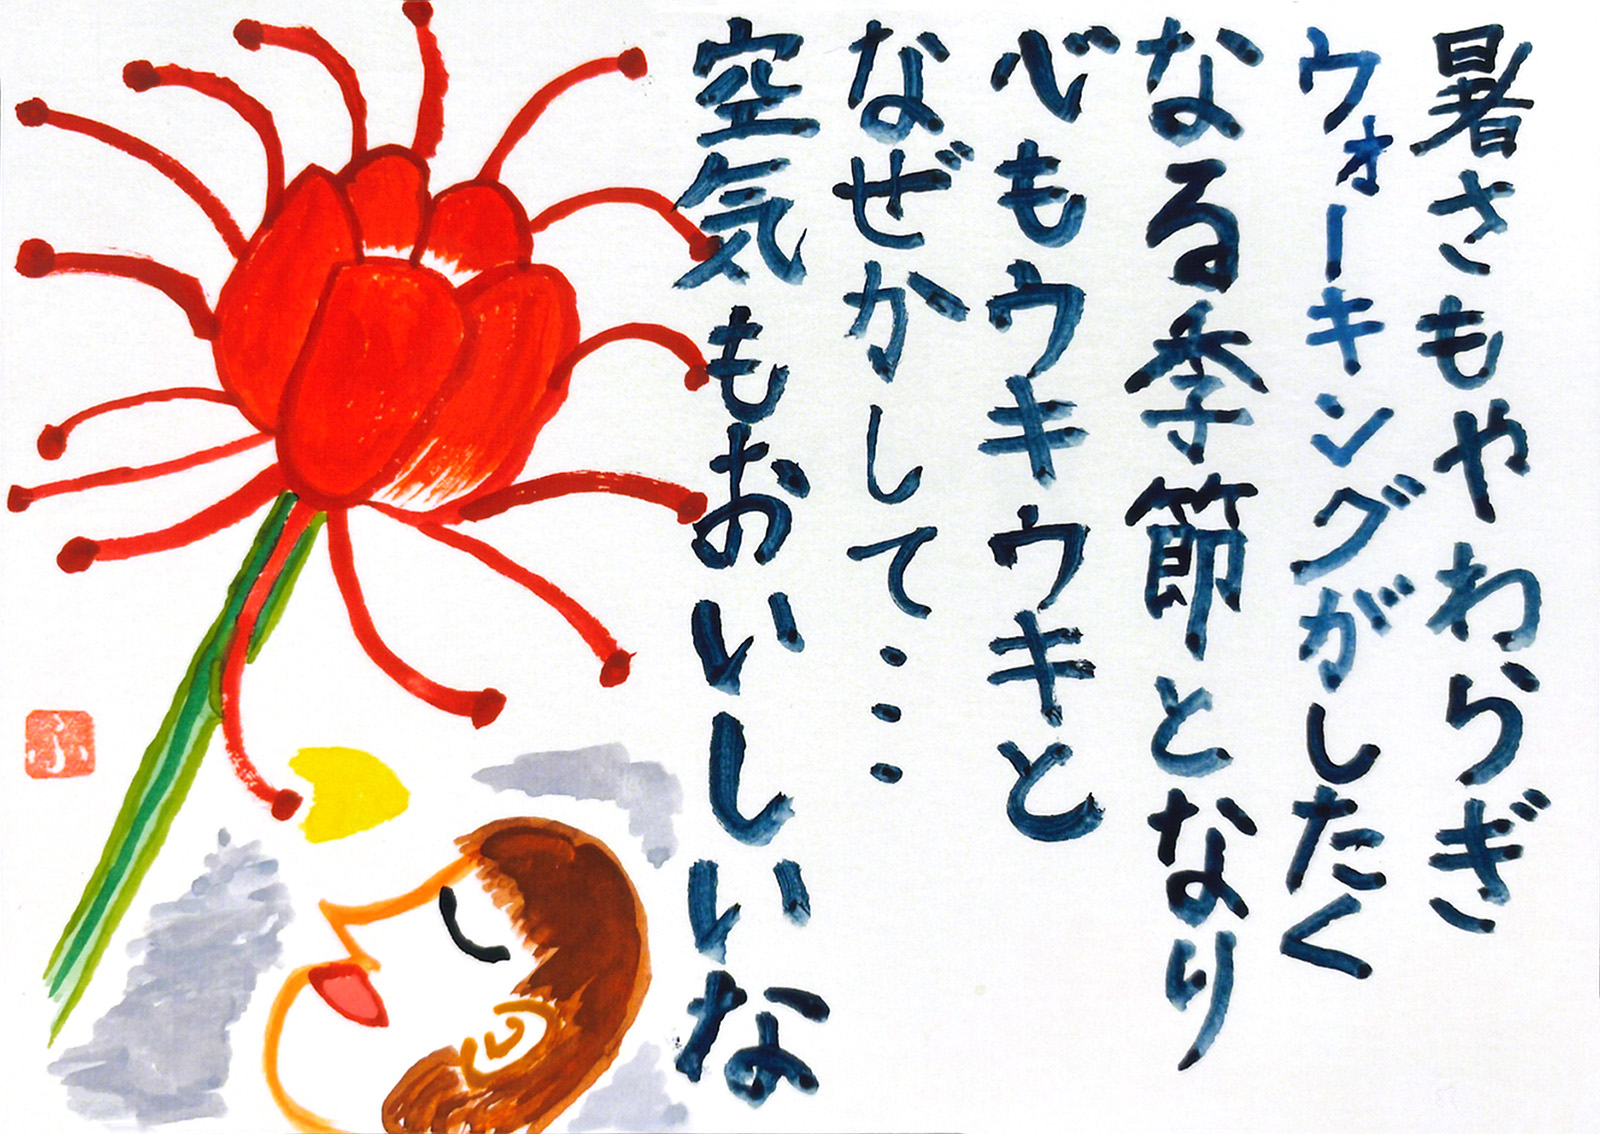 暑さもやわらぎ
ウォーキングがしたく
なる季節となり
心もウキウキと
なぜかして・・・
空気もおいしいな
ふ